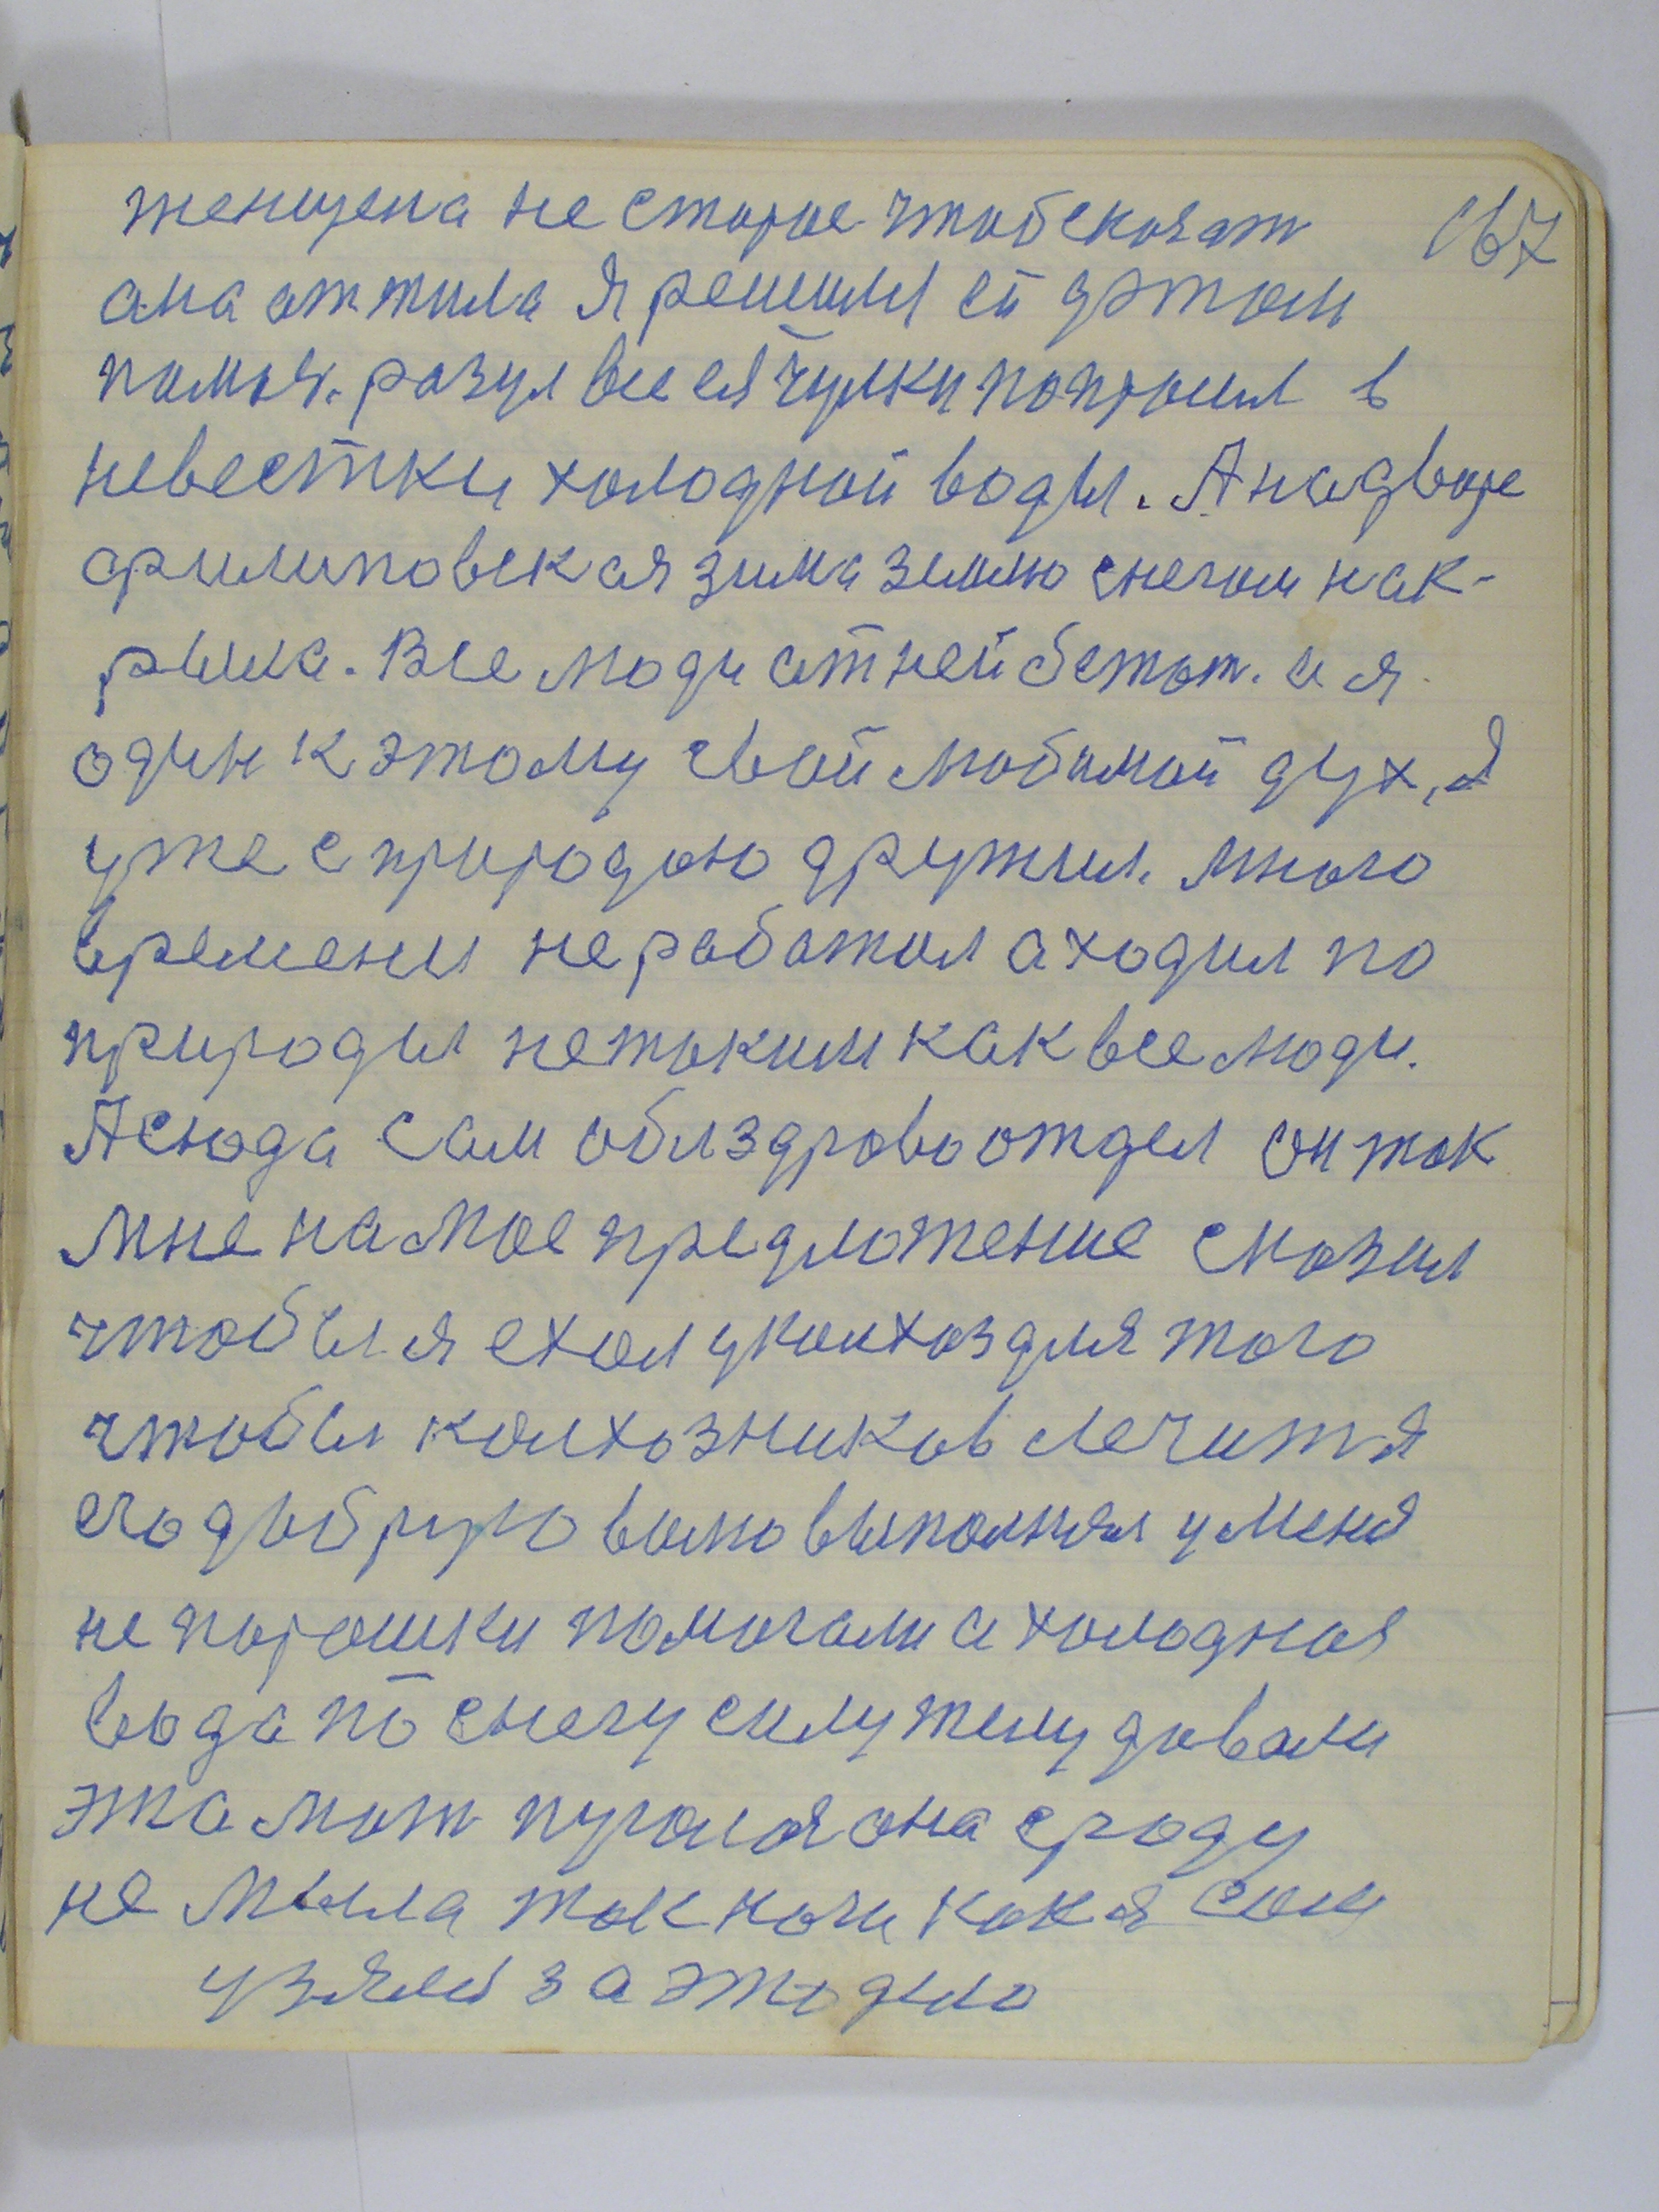 167
женщена не старое чтоб сказат
она отжила я решил ей уэтом
помоч. разул все ея чулки попросил в
невестки холодной воды. А надворе
филиповская зима землю снегом нак-
рыла. Все люди от ней бежат. а я
один к этому свой любимой дух, я
уже с природою дружил. много
времени не работал а ходил по
природы не таким как все люди.
А сюда сам облздравоотдел он так
мне на мое предложение сказал
чтобы я ехал у колхоз для того
чтобы колхозников лечит я
его добрую волю выполнял у меня
не порошки помогали а холодная
вода по снегу силу телу давали
эта мат пугалоя она сроду
не мыла так ноги как я сам
узялса за это дило